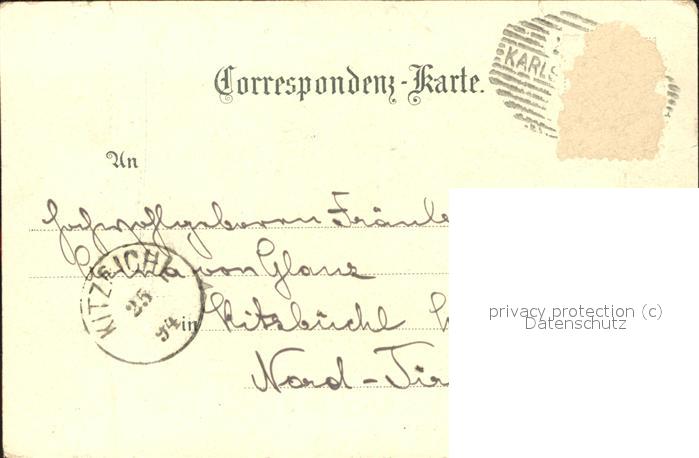 Correspondenz-Karte.
KARLS
An
Hochwohlgeboren Fräule
von Glanz
KITZBICHL
25
94
in Kitzbüchl
Nord-Tir
privacy protection (c)
Datenschutz